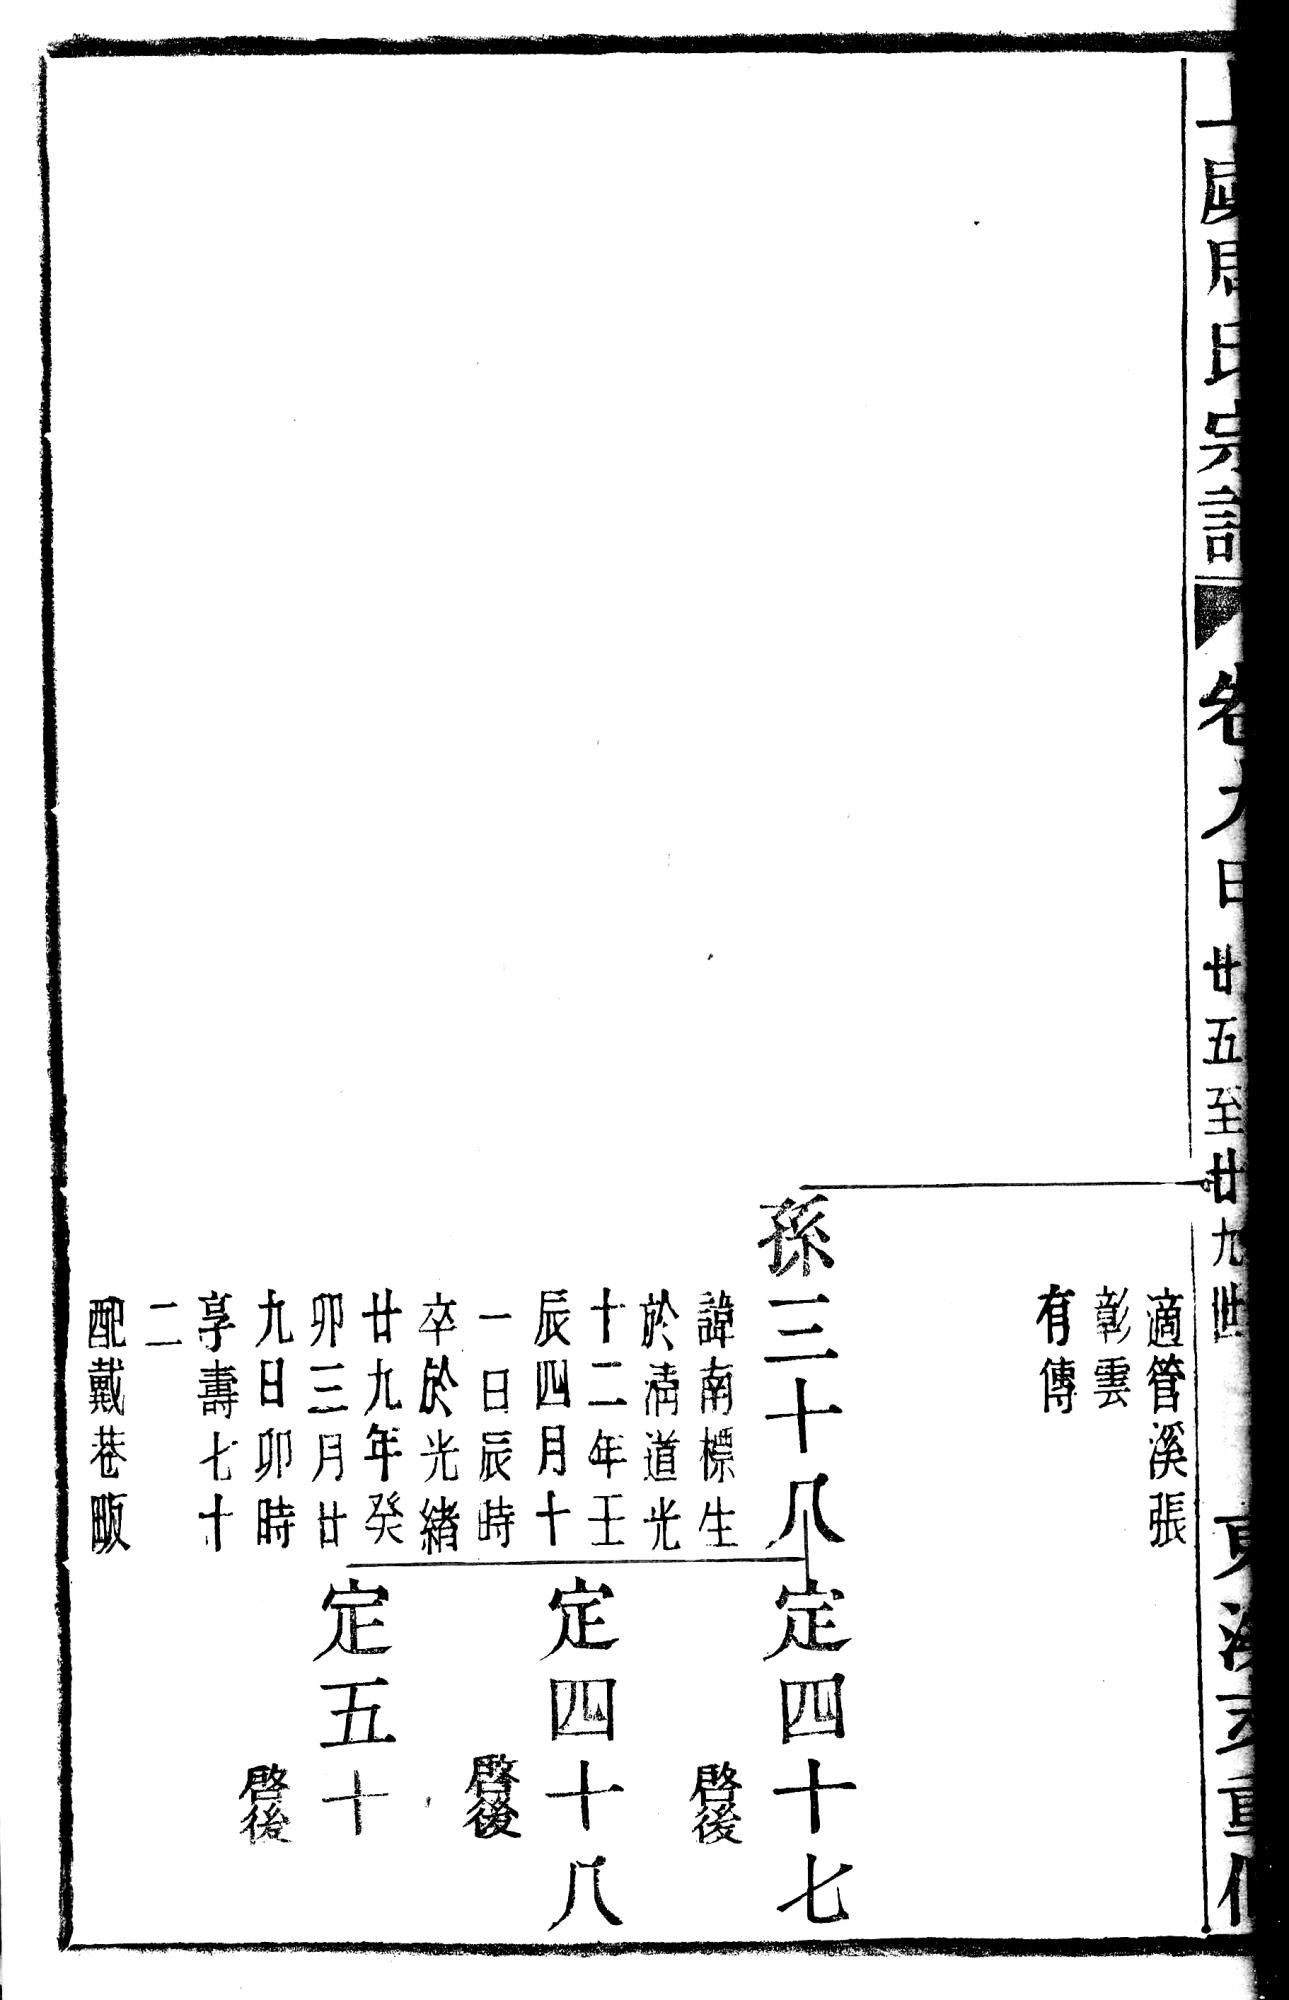 周氏宗譜
卷九
廿五至廿九世
重修
適管溪張
彰雲
有傳
孫三十八
諱南標生
於淸道光
十二年壬
辰四月十
一日辰時
卒於光緖
廿九年癸
卯三月廿
九日卯時
享壽七十
二
配戴巷畈
定四十七
啓後
定四十八
啓後
定五十
啓後